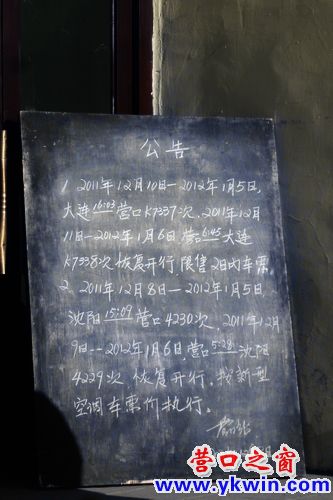 公告
1. 2011年12月10日—2012年1月5日,
大连16:03营口K7337次, 2011年12月
11日—2012年1月6日营口6:45大连
K7338次恢复开行,限售2日内车票。
2. 2011年12月8日—2012年1月5日
沈阳15:09营口4230次, 2011年12月
9日—2012年1月6日,营口5:28沈阳
4229次恢复开行,按新型
空调车票价执行。
营口之窗
www.ykwin.com